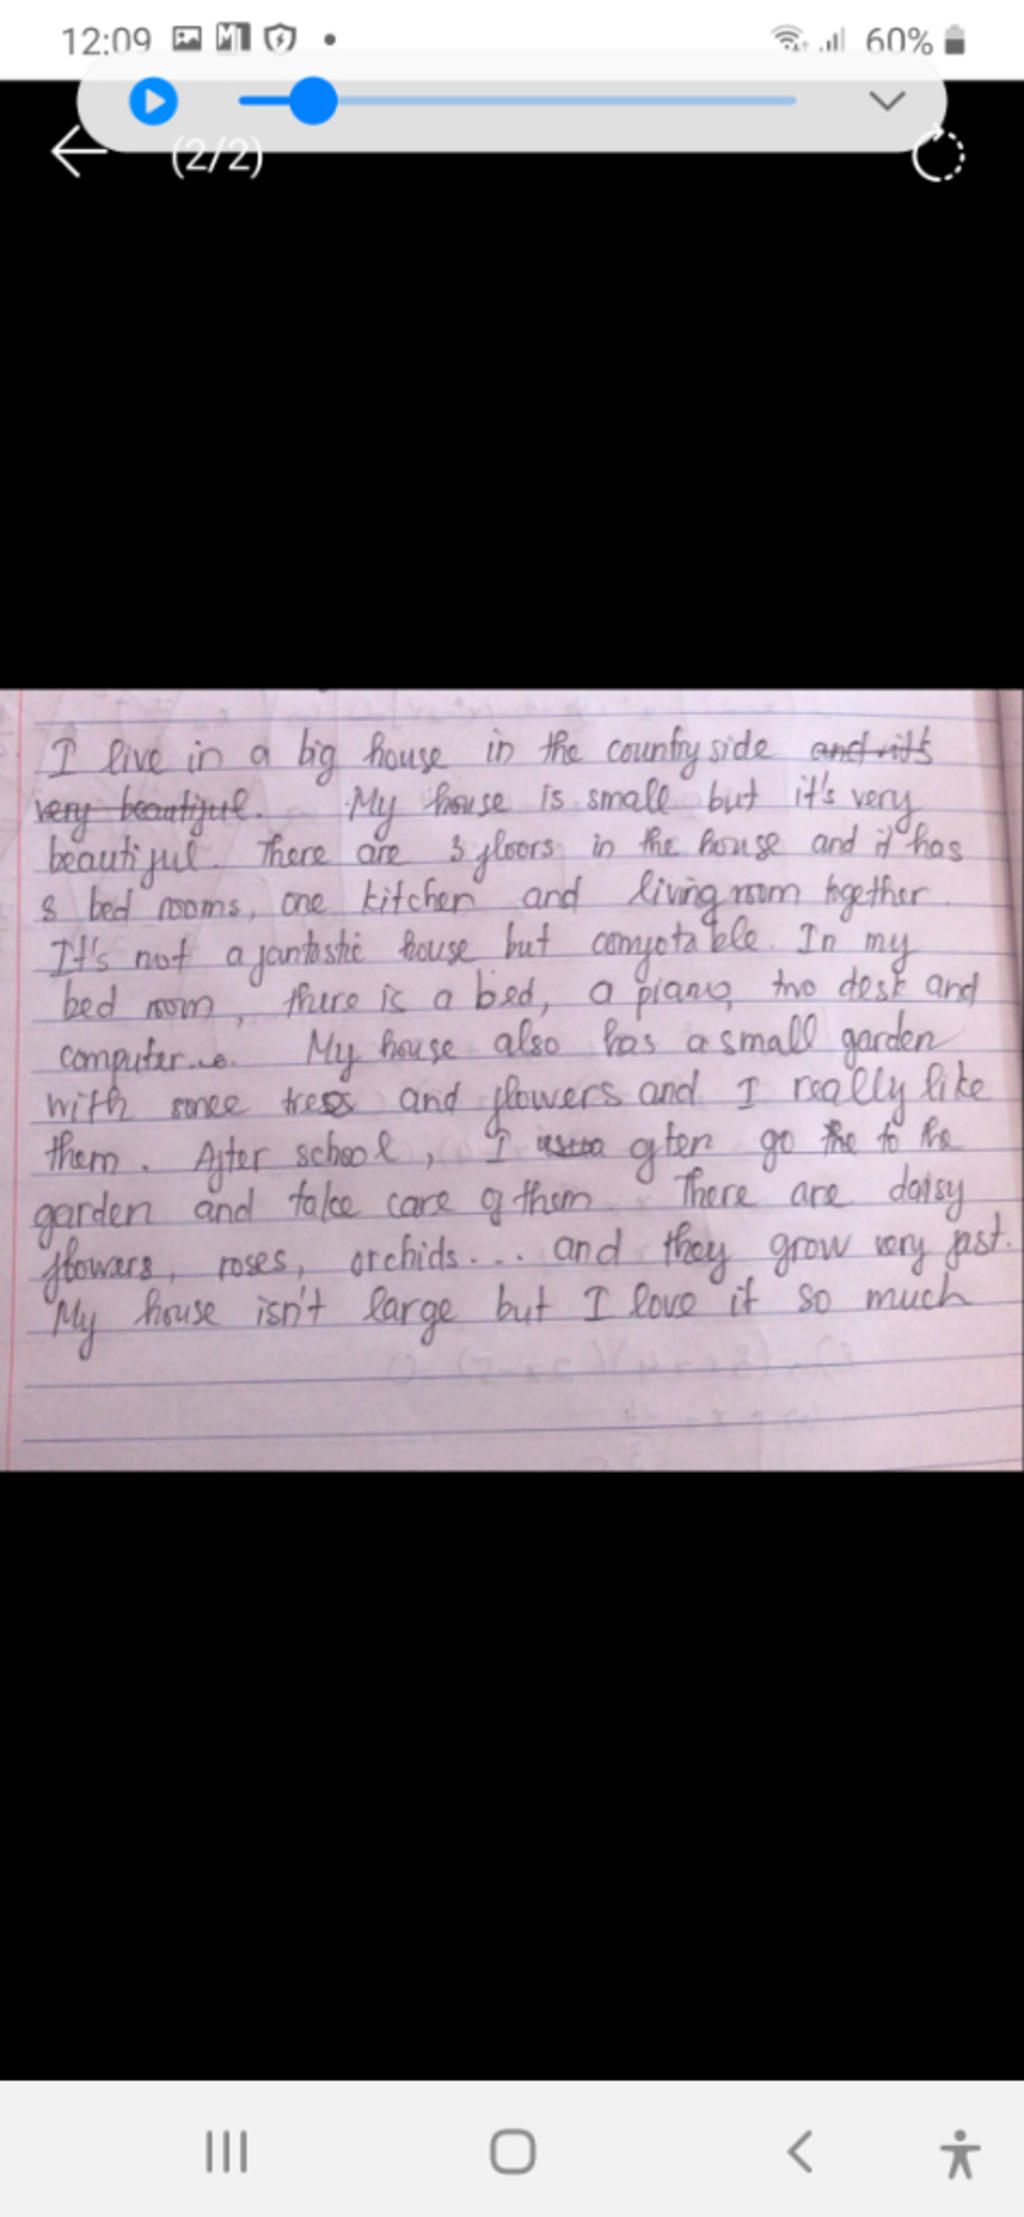 12:09
60%
(2/2)
I live in a big house in the country side and it's
very beautiful. My house is small but it's very
beautiful. There are 3 floors in the house and it has
3 bed rooms, one kitchen and living room together.
It's not a fantastic house but comfotable. In my
bed room, there is a bed, a piano, two desk and
computer... My house also has a small garden
with some trees and flowers and I really like
them. After school, I often go the to the
garden and take care of them. There are daisy
flowers, roses, orchids.... and they grow very fast.
My house isn't large but I love it so much